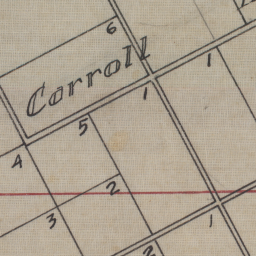 6
Carroll
1
1
5
4
2
3
1
2